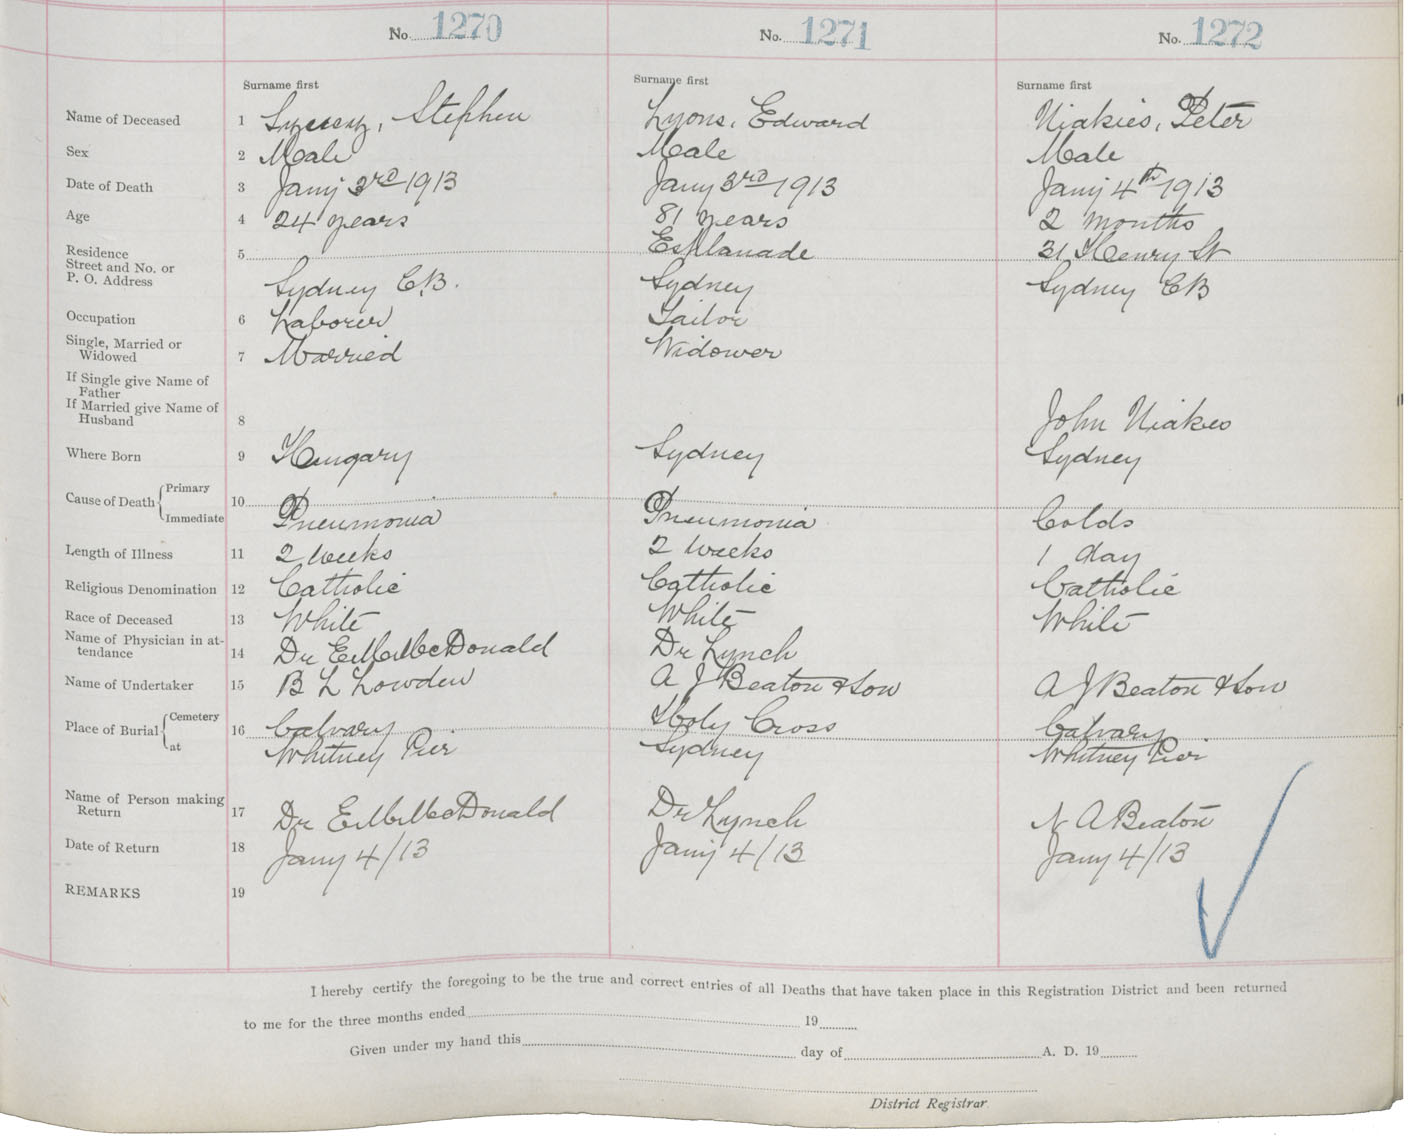 No. 1270 No. 1271 No. 1272
Surname first Surname first Surname first
Name of Deceased 1 Stephen Lyons, Edward Peter
Sex 2 Male Male Male
Date of Death 3 Jany 3rd 1913 Jany 3rd 1913 Jany 4th 1913
Age 4 24 years 81 years 2 months
Residence 5 Esplanade 31 Henry St
Street and No. or
P. O. Address Sydney C.B. Sydney Sydney CB
Occupation 6 Laborer Tailor
Single, Married or
Widowed 7 Married Widower
If Single give Name of
Father
If Married give Name of
Husband 8 John
Where Born 9 Hungary Sydney Sydney
Cause of Death Primary 10
Immediate Pneumonia Pneumonia Colds
Length of Illness 11 2 weeks 2 weeks 1 day
Religious Denomination 12 Catholic Catholic Catholic
Race of Deceased 13 White White White
Name of Physician in at-
tendance 14 Dr E. McDonald Dr Lynch
Name of Undertaker 15 B L Lowden A J Beaton & Son A J Beaton & Son
Place of Burial Cemetery 16 Calvary Holy Cross Calvary
at Whitney Pier Sydney Whitney Pier
Name of Person making
Return 17 Dr E. McDonald Dr Lynch N A Beaton
Date of Return 18 Jany 4/13 Jany 4/13 Jany 4/13
REMARKS 19
I hereby certify the foregoing to be the true and correct entries of all Deaths that have taken place in this Registration District and been returned
to me for the three months ended 19
Given under my hand this day of A. D. 19
District Registrar